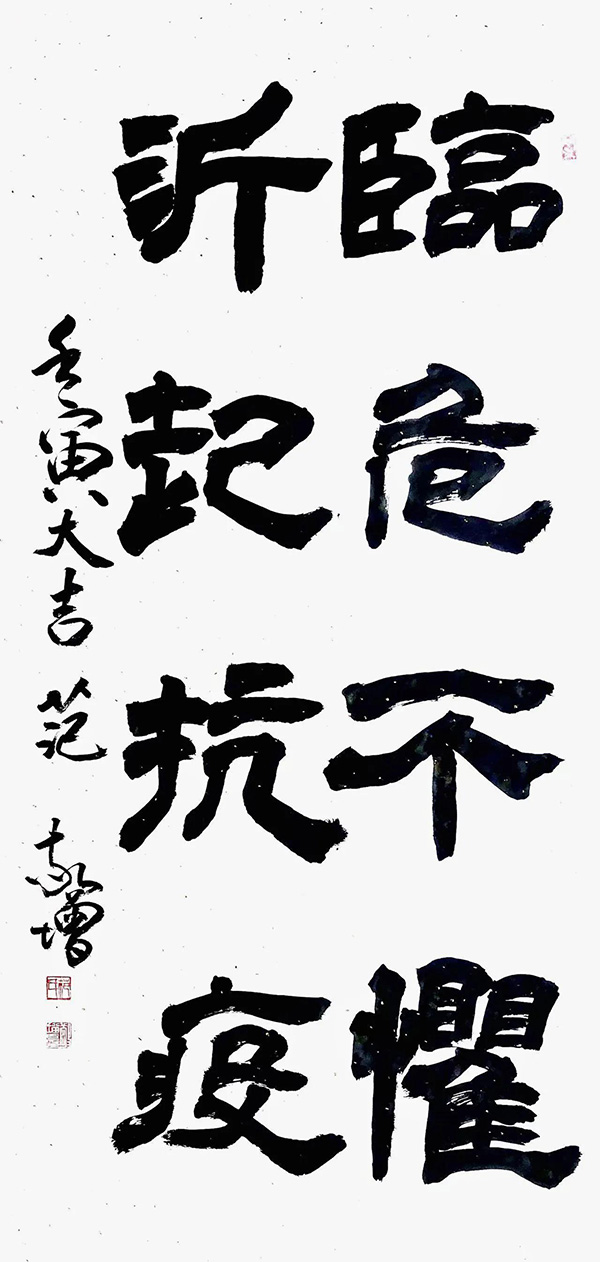 臨危不懼
沂起抗疫
壬寅大吉 范敬增